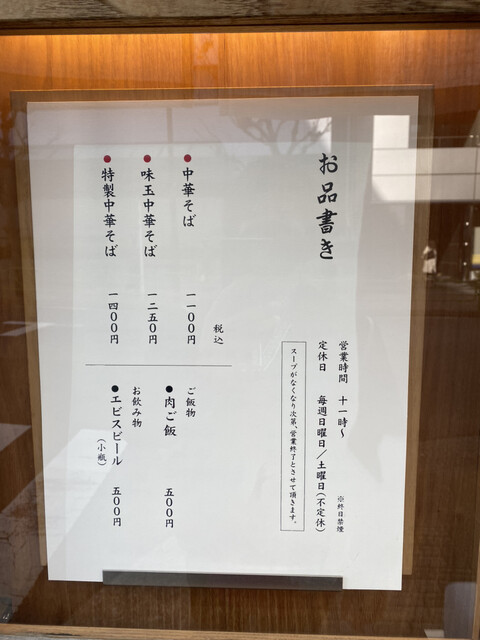 お品書き
営業時間　十一時～
※終日禁煙
定休日　毎週日曜日／土曜日(不定休)
スープがなくなり次第、営業終了とさせて頂きます。
税込
●中華そば　一一〇〇円
●味玉中華そば　一二五〇円
●特製中華そば　一四〇〇円
ご飯物
●肉ご飯　五〇〇円
お飲み物
●エビスビール　五〇〇円
(小瓶)